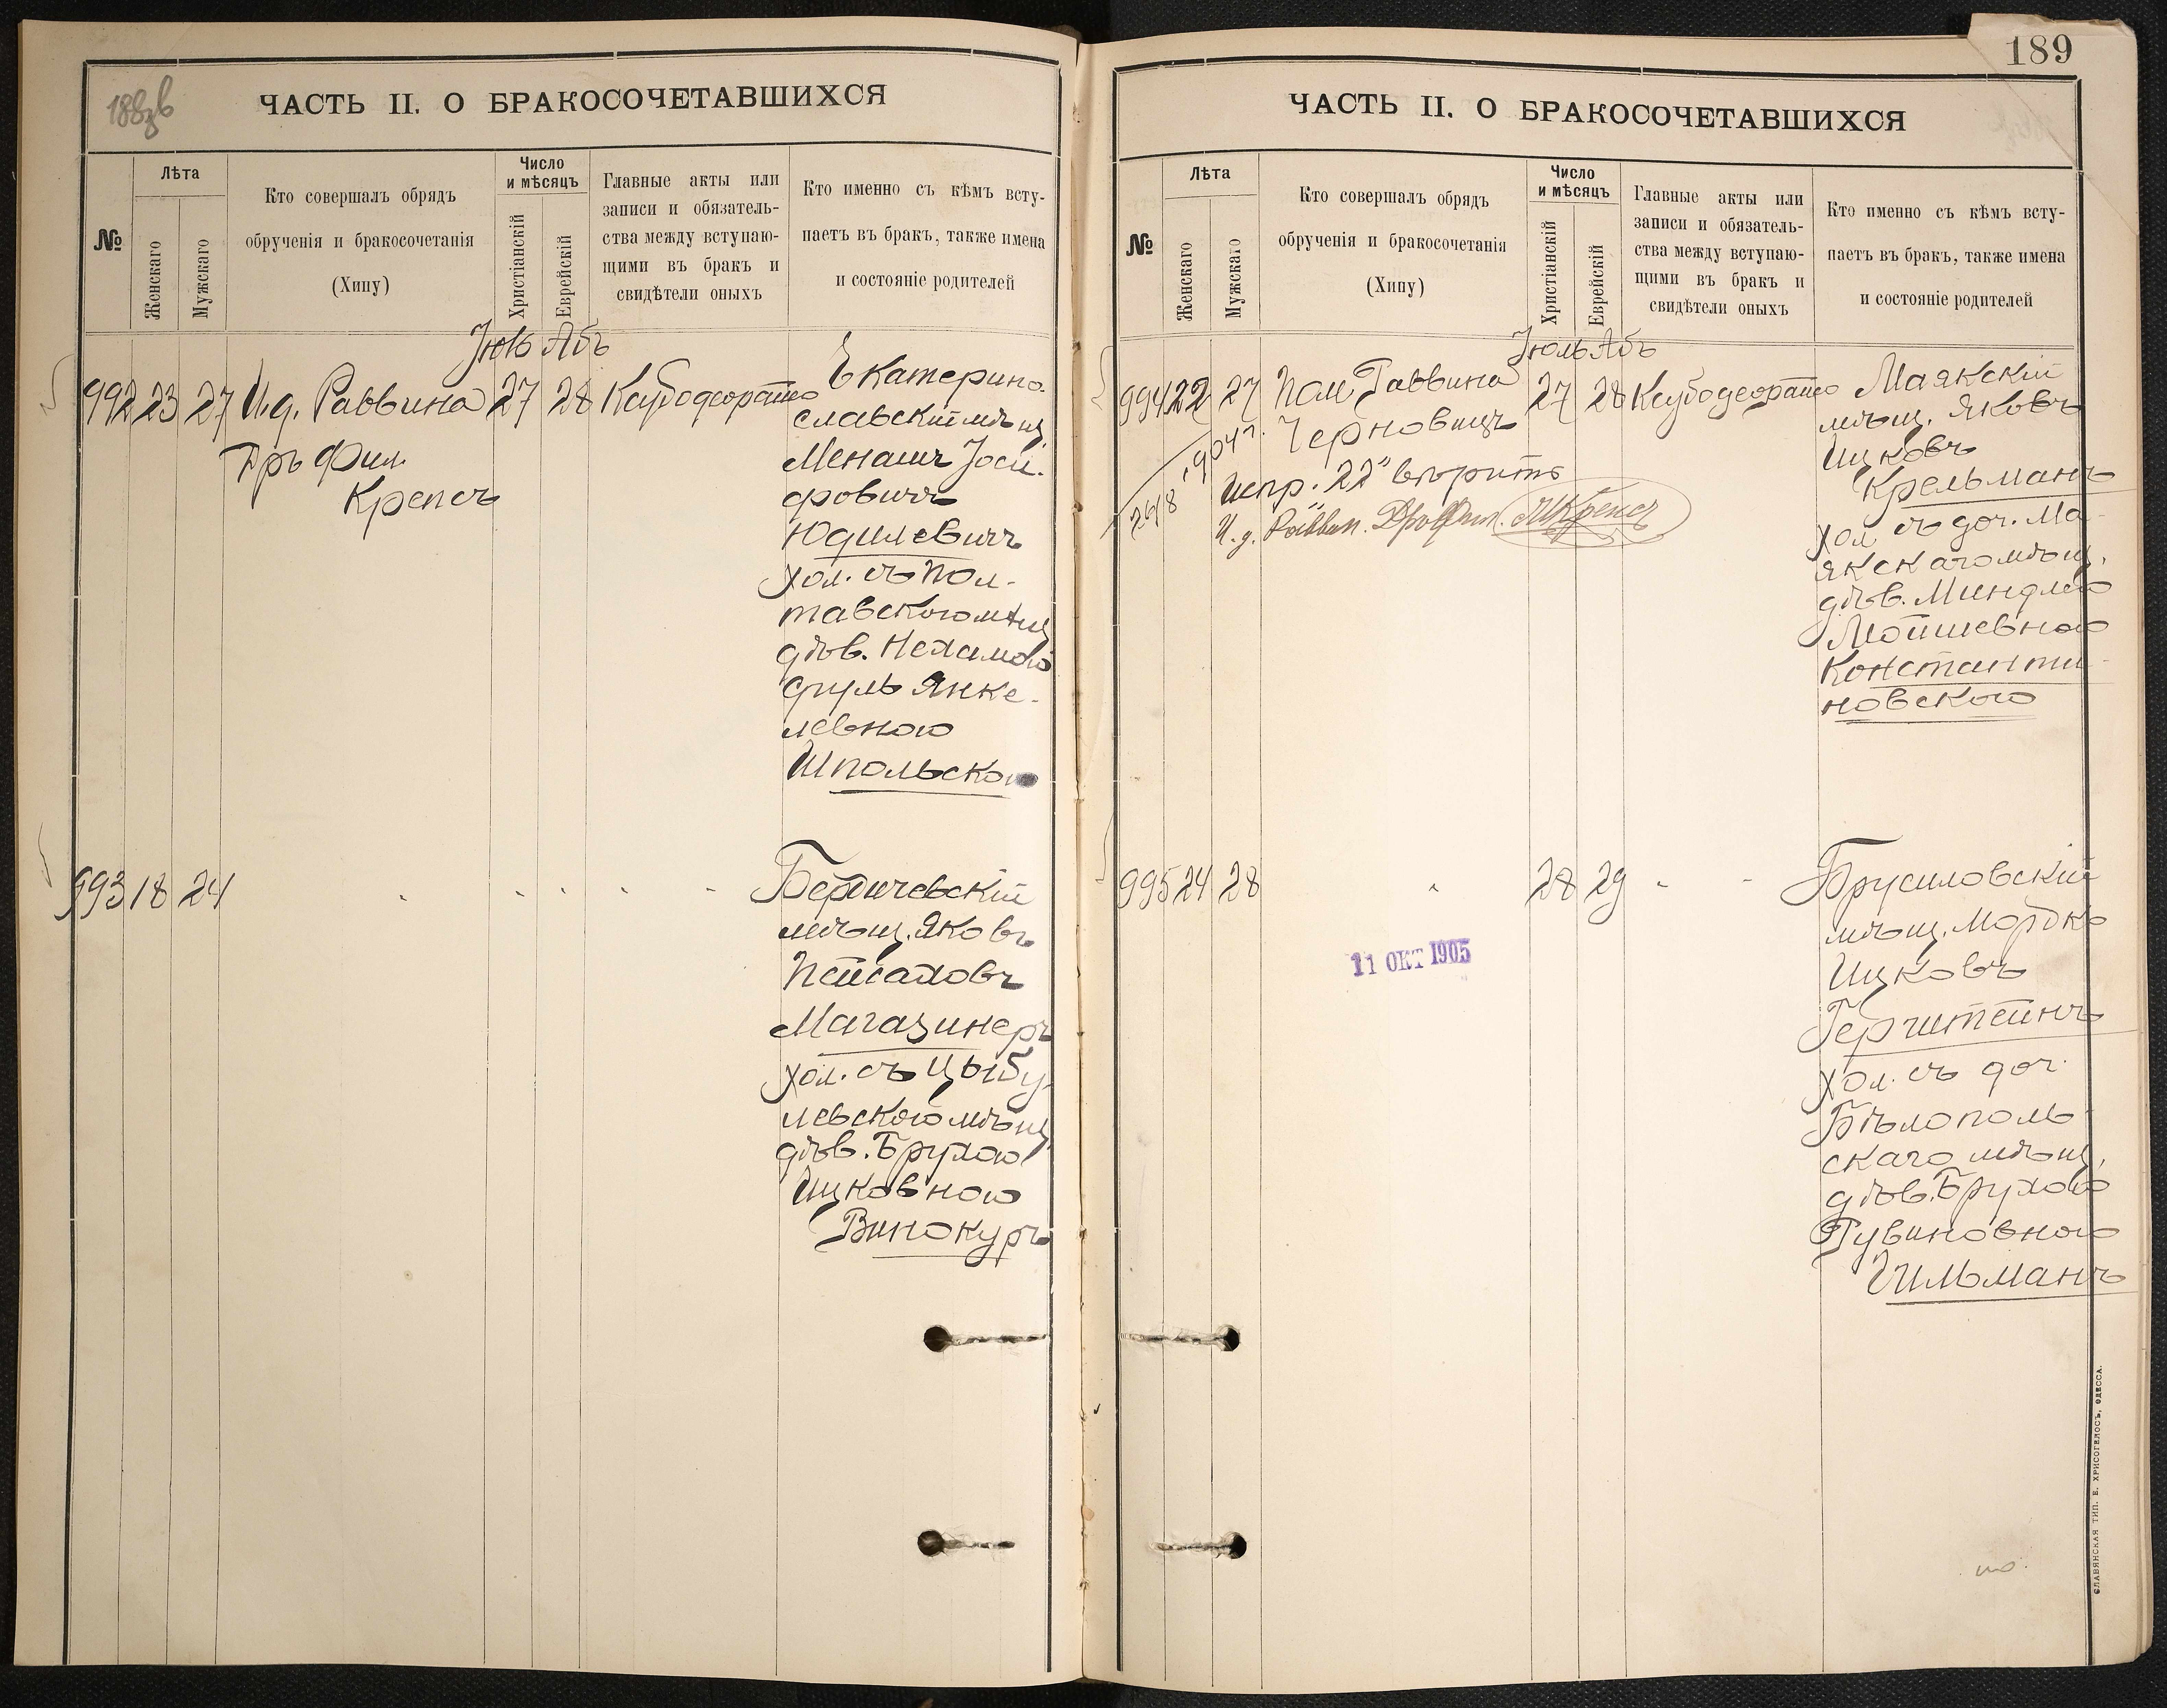 188об
ЧАСТЬ II. О БРАКОСОЧЕТАВШИХСЯ
№
Лѣта
Женскаго
Мужскаго
Кто совершалъ обрядъ
обрученія и бракосочетанія
(Хипу)
Число
и мѣсяцъ
Христіанскій
Еврейскій
Главные акты или
записи и обязатель-
ства между вступаю-
щими въ бракъ и
свидѣтели оныхъ
Кто именно съ кѣмъ всту-
паетъ въ бракъ, также имена
и состояніе родителей
Іюль Абъ
992 23 27 И.д. Раввина 27 28
Дръ Фил.
Крепсъ
Екатерино-
славскій мѣщ.
Менаше Іоси-
фовичъ
Юдилевичъ
хол. съ Пол-
тавскою мѣщ.
дѣв. Нехамою
Янке-
левною
Шпольскою
993 18 24
Бердичевскій
мѣщ. Яковъ
Пейсаховъ
Магазинеръ
хол. съ Цыбу-
левскою мѣщ.
дѣв. Брухою
Ицковною
Винокуръ
189
ЧАСТЬ II. О БРАКОСОЧЕТАВШИХСЯ
№
Лѣта
Женскаго
Мужскаго
Кто совершалъ обрядъ
обрученія и бракосочетанія
(Хипу)
Число
и мѣсяцъ
Христіанскій
Еврейскій
Главные акты или
записи и обязатель-
ства между вступаю-
щими въ бракъ и
свидѣтели оныхъ
Кто именно съ кѣмъ всту-
паетъ въ бракъ, также имена
и состояніе родителей
Іюль Абъ
994 22 27 Пом. Раввина 27 28
Черновицъ
26/8 1904 г.
Испр. "22" вѣрить
И.д. Раввин. Дръ Фил. М Крепсъ
Маякскій
мѣщ. Яковъ
Ицковъ
Крельманъ
хол. съ доч. Ма-
якскаго мѣщ.
дѣв. Миндлею
Мошевною
Константи-
новскою
995 24 28 28 29
11 ОКТ 1905
Брусиловскій
мѣщ. Мордко
Ицковъ
Герштейнъ
хол. съ доч.
Бѣлополь-
скаго мѣщ.
дѣв. Брухою
Рувиновною
Гильманъ
СЛАВЯНСКАЯ ТИП. Е. ХРИСОГЕЛОСЪ, ОДЕССА.